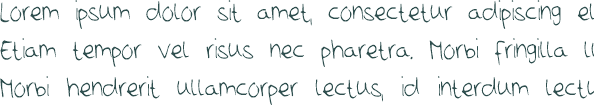 Lorem ipsum dolor sit amet, consectetur adipiscing el
Etiam tempor vel risus nec pharetra. Morbi fringilla ll
Morbi hendrerit ullamcorper lectus, id interdum lectu